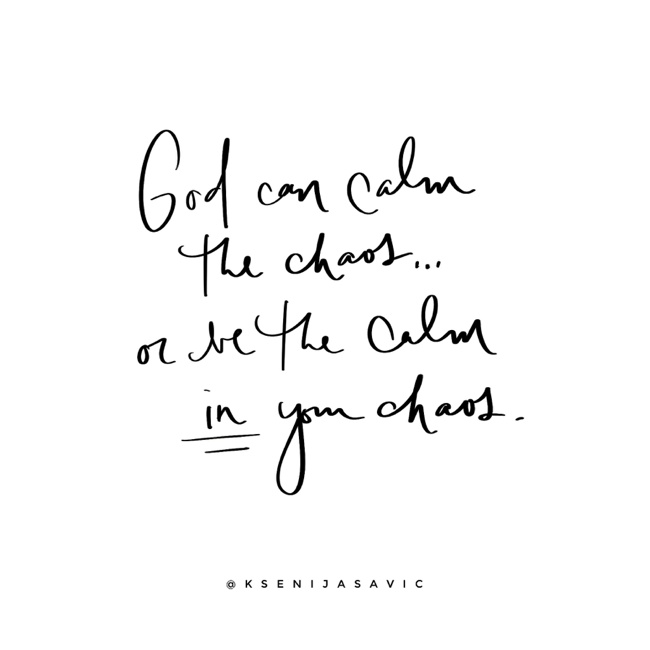 God can calm
the chaos...
or be the calm
in your chaos.
@KSENIJASAVIC